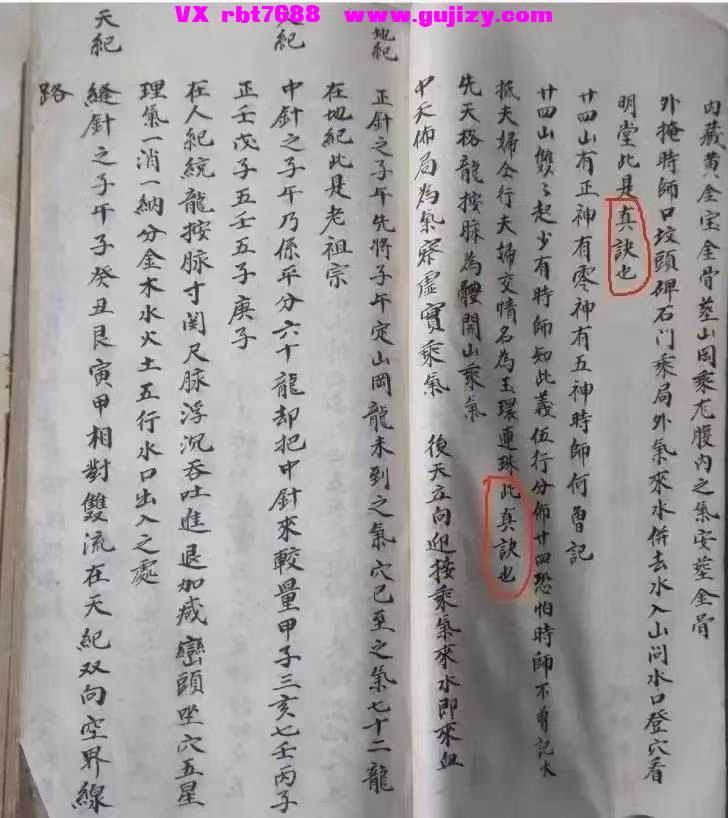 VX rbt7688 www.gujizy.com
內藏黃金宝金骨塟山岡乘龙腹內之氣安塟金骨
外掩時師口坟頭碑石门乘局外氣來水併去水入山问水口登穴看
明堂此是真訣也
廿四山有正神有零神有五神時師何曾記
廿四山雙々起少有時師知此義伍行分佈廿四恐怕時師不曾記大
抵夫婦仝行夫婦交情名為玉環連珠此真訣也
先天格龍按脉為體開山乘氣
中天佈局為氣察虛實乘氣 後天立向迎接乘氣來水即來血
地紀
正針之子午先將子午定山岡龍未到之氣穴已至之氣七十二龍
在地紀此是老祖宗
紀
中針之子午乃係平分六十龍却把中針來較量甲子三亥七壬丙子
正壬戊子五壬五子庚子
在人紀統龍按脉寸関尺脉浮沉吞吐進退加减巒頭坐穴五星
理氣一消一納分金木水火土五行水口出入之處
天紀
縫針之子午子癸丑艮寅甲相對雙流在天紀双向空界線
路